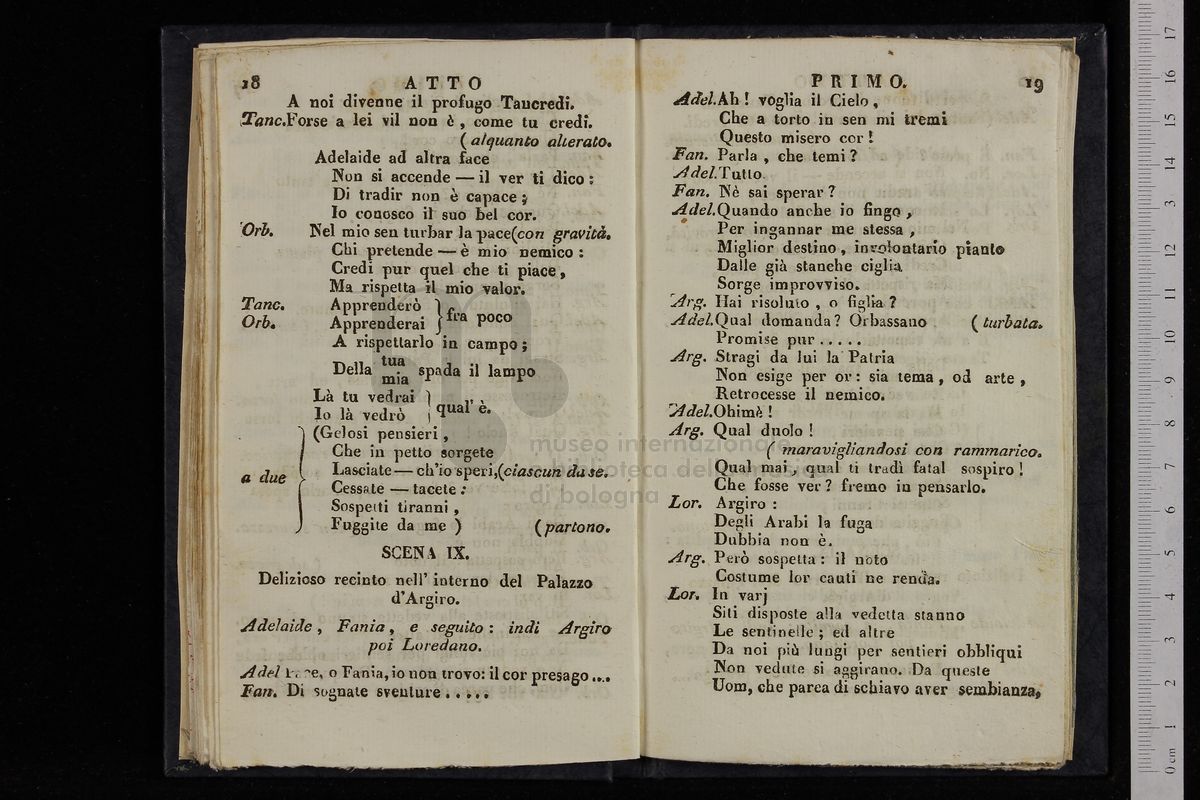 18 ATTO
A noi divenne il profugo Tancredi.
Tanc. Forse a lei vil non è, come tu credi.
(alquanto alterato.
Adelaide ad altra face
Non si accende — il ver ti dico:
Di tradir non è capace;
Io conosco il suo bel cor.
Orb. Nel mio sen turbar la pace (con gravità.
Chi pretende — è mio nemico:
Credi pur quel che ti piace,
Ma rispetta il mio valor.
Tanc. Apprenderò } fra poco
Orb. Apprenderai }
A rispettarlo in campo;
Della tua spada il lampo
mia
Là tu vedrai } qual' è.
Io là vedrò }
(Gelosi pensieri,
Che in petto sorgete
a due Lasciate — ch'io speri, (ciascun da se.
Cessate — tacete:
Sospetti tiranni,
Fuggite da me ) (partono.
SCENA IX.
Delizioso recinto nell' interno del Palazzo
d'Argiro.
Adelaide, Fania, e seguito: indi Argiro
poi Loredano.
Adel o Fania, io non trovo: il cor presago ....
Fan. Di sognate sventure .....
PRIMO. 19
Adel. Ah! voglia il Cielo,
Che a torto in sen mi tremi
Questo misero cor!
Fan. Parla, che temi?
Adel. Tutto.
Fan. Nè sai sperar?
Adel. Quando anche io fingo,
Per ingannar me stessa,
Miglior destino, involontario pianto
Dalle già stanche ciglia
Sorge improvviso.
Arg. Hai risoluto, o figlia?
Adel. Qual domanda? Orbassano (turbata.
Promise pur .....
Arg. Stragi da lui la Patria
Non esige per or: sia tema, od arte,
Retrocesse il nemico.
Adel. Ohimè!
Arg. Qual duolo!
( maravigliandosi con rammarico.
Qual mai, qual ti tradì fatal sospiro!
Che fosse ver? fremo in pensarlo.
Lor. Argiro:
Degli Arabi la fuga
Dubbia non è.
Arg. Però sospetta: il noto
Costume lor cauti ne renda.
Lor. In varj
Siti disposte alla vedetta stanno
Le sentinelle; ed altre
Da noi più lungi per sentieri obbliqui
Non vedute si aggirano. Da queste
Uom, che parea di schiavo aver sembianza,
museo internazionale
e biblioteca della
di bologna
0 cm 1 2 3 4 5 6 7 8 9 10 11 12 13 14 15 16 17